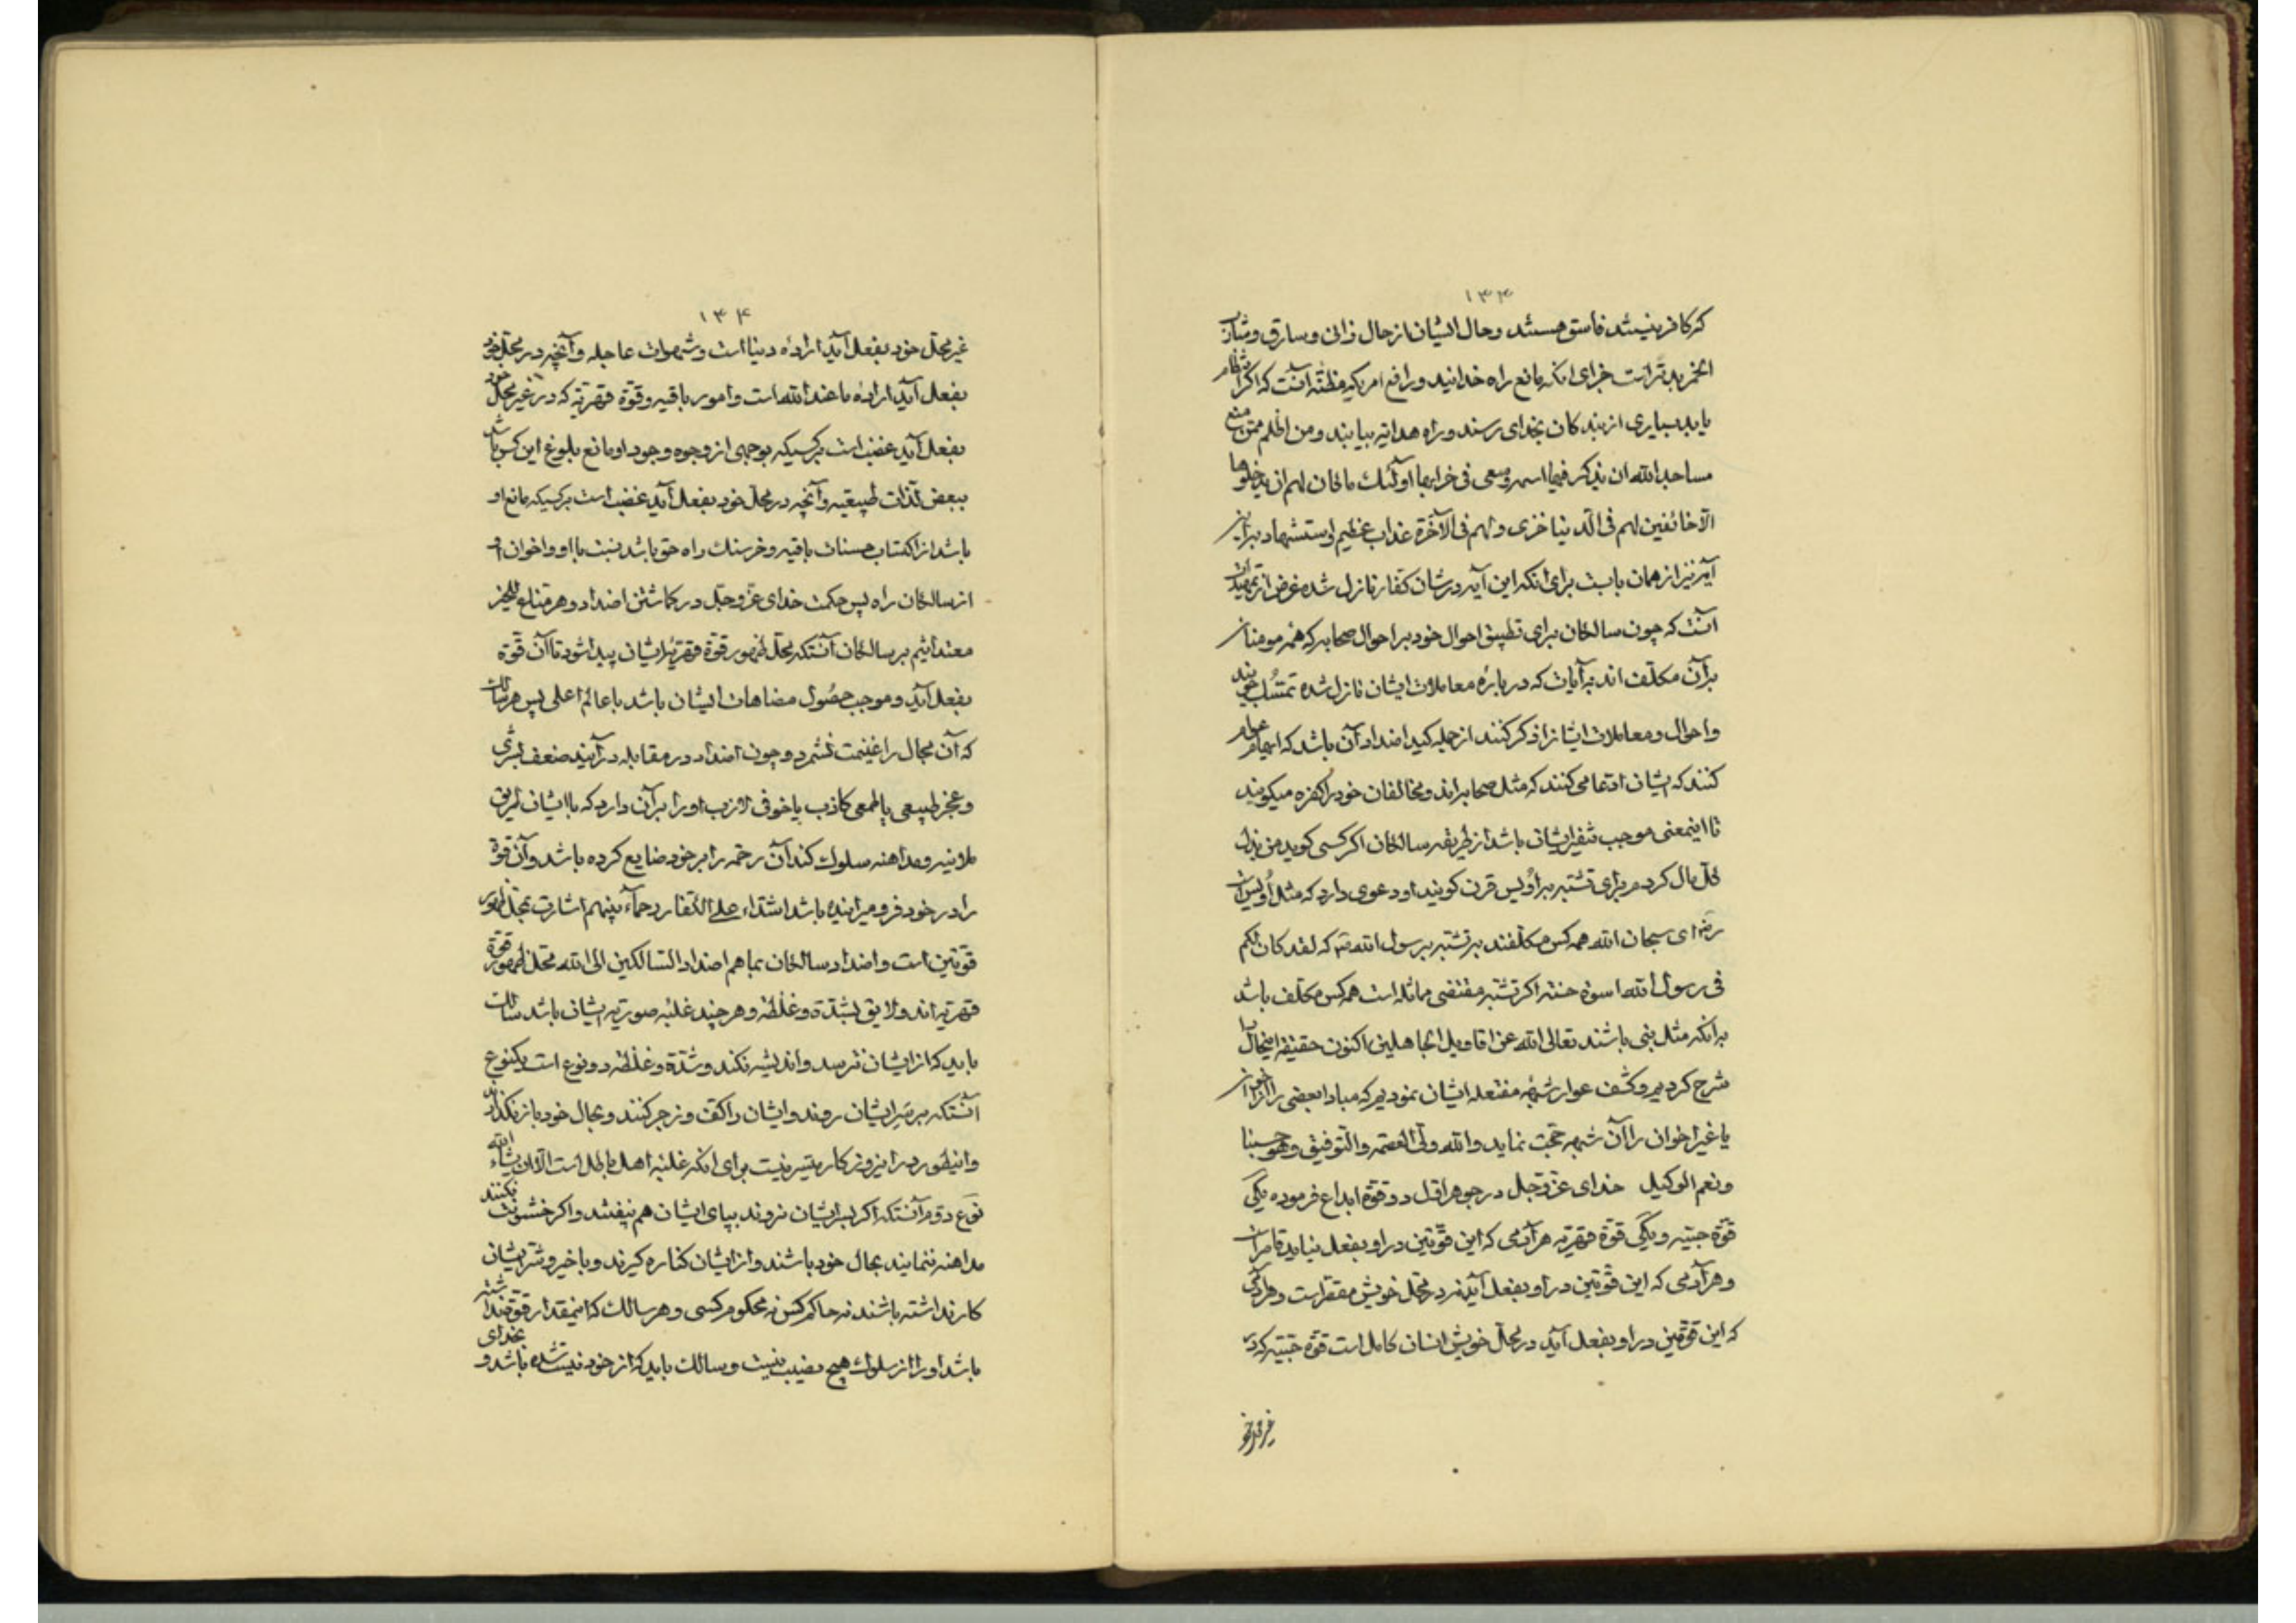 ۱۳۳
که کافر نیستند فاسق هستند وحال ایشان از حال زانی وسارق وشارب
الخمر بدتر است جزای انکه مانع راه خدایند ورافع امریکه مظنّه آنست که اکر نظام
یابد بسیاری از بندکان بخدای رسند وراه هدایه بیابند ومن اظلم ممن منع
مساجد الله ان یذکر فیها اسمه وسعی فی خرابها اولٓئک ما کان لهم ان یدخلوها
الّا خائفین لهم فی الدّنیا خزی ولهم فی الآخرة عذاب عظیم واستشهاد براین
آیه نیز از همان بابست برای انکه این آیه درشان کفّار نازل شده غرض از تمهید آن
آنست که چون سالکان برای تطبیق احوال خود بر احوال صحابه که همه مومنان
برآن مکلّف اند به آیات که درباره معاملات ایشان نازل شده تمسّک جویند
واحوال ومعاملات ایشانرا ذکر کنند از جمله کید اضداد آن باشد که ایهام عوام
کنند که ایشان ادّعا می کنند که مثل صحابه اند ومخالفان خود را کفره میکویند
تا اینمعنی موجب تنفّر ایشان باشد از طریقه سالکان اکر کسی کوید من بذل
کلّ مال کردم برای تشبّه به اُویس قرن کویند او دعوی دارد که مثل اُویس است
رضه ای سبحان الله همه کس مکلّفند به تشبّه برسول الله صم که لقد کان لکم
فی رسول الله اسوة حسنة اکر تشبّه مقتضی مماثله است همه کس مکلّف باشد
برانکه مثل نبی باشند تعالی الله عن اقاویل الجاهلین اکنون حقیقه اینحال را
شرح کردیم وکشف عوار شبهه مفتعله ایشان نمودیم که مبادا بعضی را از اخوان
یا غیر اخوان را آن شبهه حجّت نماید والله ولیّ العصمه والتّوفیق وهو حسبنا
ونعم الوکیل خدای عزّوجلّ در جوهر اوّل دو قوّه ابداع فرموده یکی
قوّة حبّیه ویکی قوّة قهریّه هر آدمی که این قوّتین در او بفعل نیاید نامرد است
وهر آدمی که این قوّتین در او بفعل آید نه در محلّ خویش مفقر است وهر آدمی
که این قوّتین در او بفعل آید در محلّ خویش انسان کامل است قوّة حبّیه که در
غیر محل خود
۱۳۴
غیر محلّ خود بفعل آید ارادهٔ دنیا است وشهوات عاجله وآنچه در محلّ خود
بفعل آید ارادهٔ ما عند الله است وامور باقیه وقوّة قهریّه که در غیر محلّ خود
بفعل آید غضب است بر کسیکه بوجهی از وجوه وجود او مانع بلوغ این کس باشد
ببعض لذّات طبیعیه وآنچه در محلّ خود بفعل آید غضب است بر کسیکه مانع او
باشد از اکتساب حسنات باقیه وخرسنک راه حق باشد نسبت با او واخوان او
از سالکان راه پس حکمت خدای عزّوجلّ در کماشتن اضداد وهر منّاع للخیر
معتد اثیم بر سالکان آنستکه محلّ ظهور قوّة قهریّه ایشان پیدا شود تا آن قوّة
بفعل آید وموجب حصُول مضاهات ایشان باشد با عالم اعلی پس هر سالک
که آن مجال را غنیمت نشمرد وچون اضداد در مقابله درآیند ضعف بشری
وعجز طبیعی یا طمعی کاذب یا خوفی لازب او را برآن دارد که با ایشان طریق
ملاینه ومداهنه سلوک کند آن رخمه را بر خود ضایع کرده باشد وآن قوّة
را در خود فرو میرانیده باشد اشدّاء علی الکفّار رحمآء بینهم اشارت بمحلّ ظهور
قوّتین است واضداد سالکان بماهم اضداد السّالکین الی الله محلّ ظهور قوّة
قهریّه اند ولایق بشدّة وغلظه وهر چند غلبه صوریّه ایشان باشد سالک
باید که از ایشان نترسد واندیشه نکند وشدّة وغلظه دو نوع است یکنوع
آنستکه بر سَر ایشان روند وایشان را کف وزجر کنند وبحال خود باز نکذارند
واینطور در این روزکار میسّر نیست برای انکه غلبه اهل باطل است الّا ان یشآء الله
نوع دوّم آنستکه اکر بسر ایشان نروند بپای ایشان هم نیفتند واکر خشونت نکنند
مداهنه ننمایند بحال خود باشند واز ایشان کناره کیرند وبا خیر وشرّ ایشان
کار نداشته باشند نه حاکم کس نه محکوم کسی وهر سالک که اینمقدار قوّة نداشته
باشد او را از سلوک هیچ نصیب نیست وسالک باید که از خود نیست شده باشد وبخدای